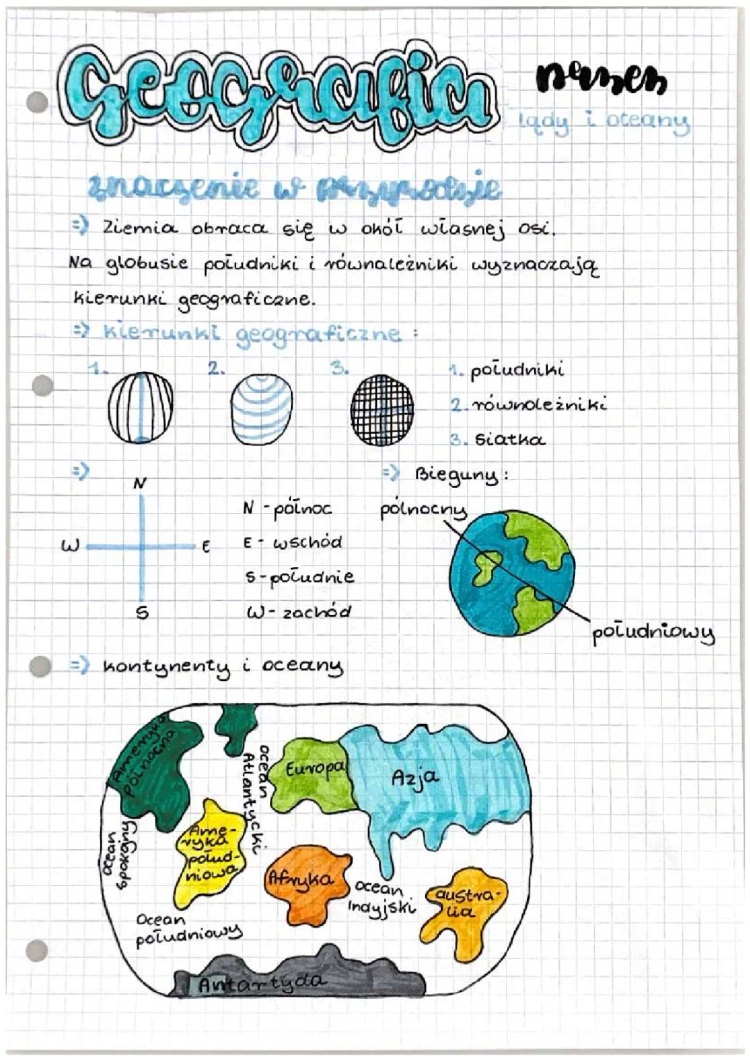 Geografia
lądy i oceany
znaczenie w przyrodzie
=> Ziemia obraca się w okół własnej osi.
Na globusie południki i równależniki wyznaczają
kierunki geograficzne.
=> kierunki geograficzne:
1. 2. 3.
1. południki
2. równoleżniki
3. siatka
=>
N
W E
S
N - północ
E - wschód
S - południe
W - zachód
=> Bieguny:
północny
południowy
=> kontynenty i oceany
Ameryka
północna
ocean
Atlantycki
Europa
Azja
ocean
spokojny
Ame-
ryka
połud-
niowa
Afryka
ocean
Indyjski
austra-
lia
Ocean
południowy
Antartyda